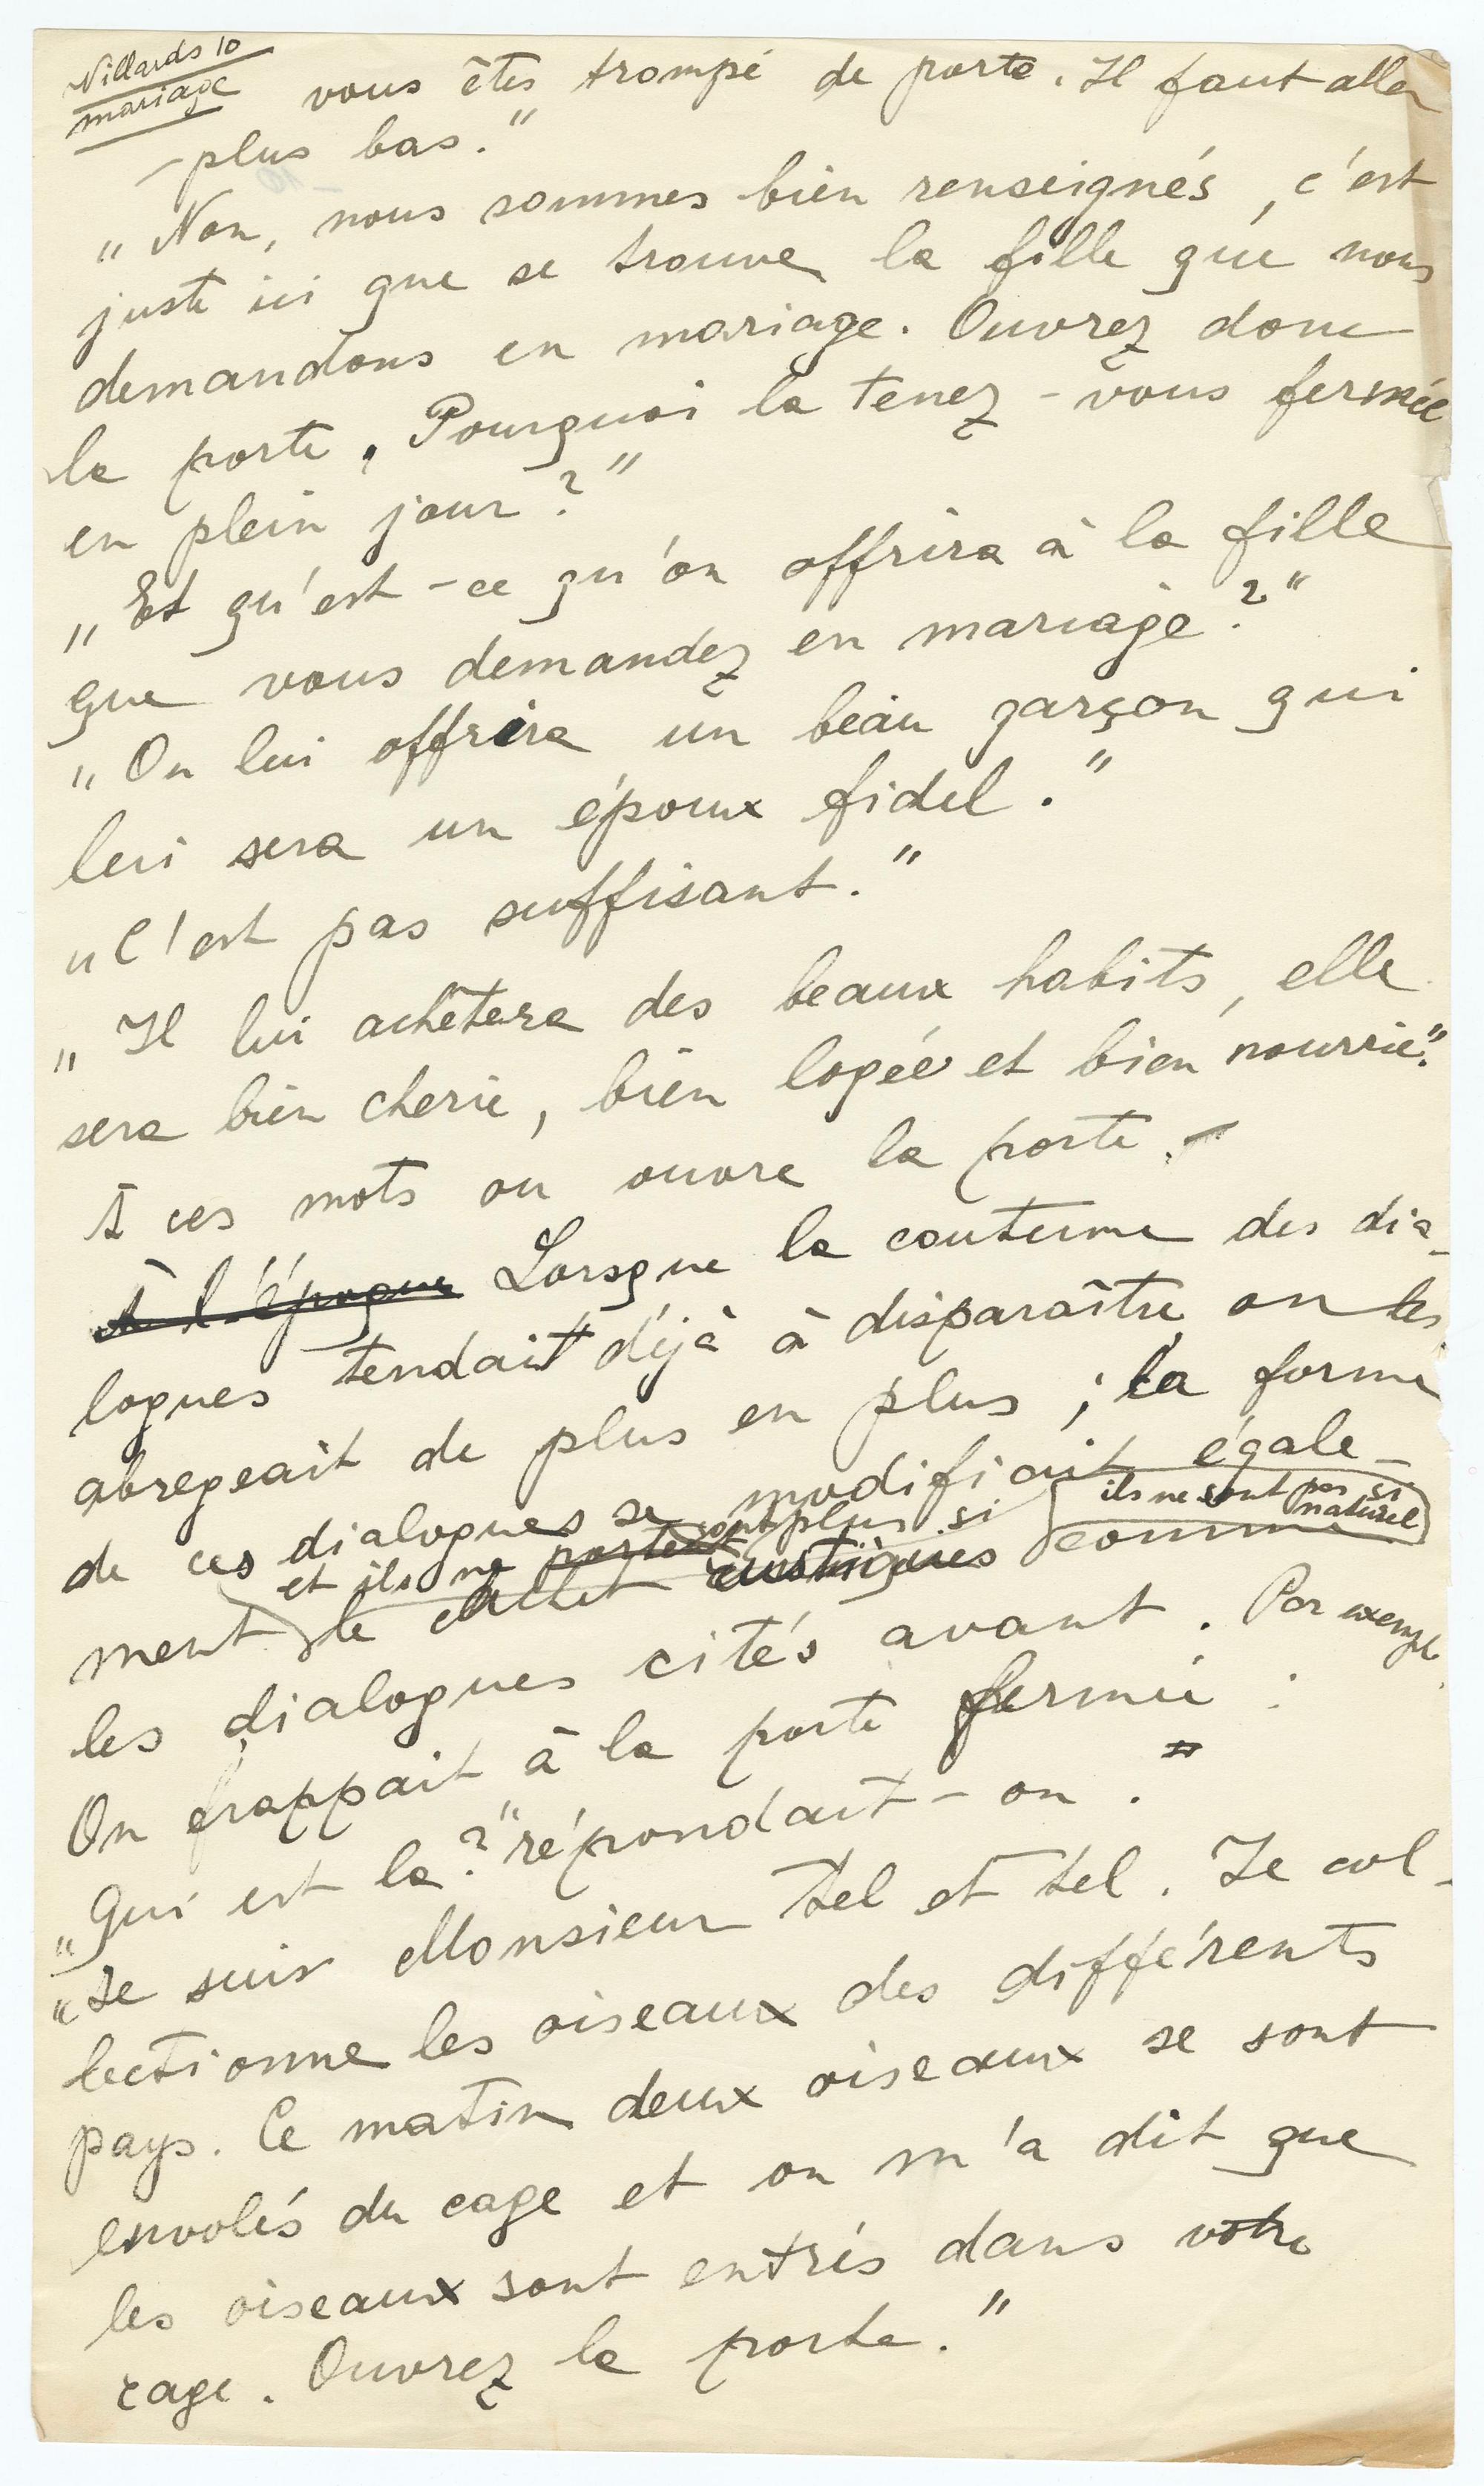 Villards 10
mariage
vous êtes trompé de porte. Il faut aller
plus bas."
„Non, nous sommes bien renseignés, c'est
juste ici que se trouve la fille que nous
demandons en mariage. Ouvrez donc
la porte. Pourquoi la tenez-vous fermée
en plein jour?"
„Et qu'est-ce qu'on offrira à la fille
que vous demandez en mariage?"
„On lui offrira un beau garçon qui
lui sera un époux fidel."
„C'est pas suffisant."
„Il lui achètera des beaux habits, elle
sera bien cherie, bien logée et bien nourrie."
À ces mots on ouvre la porte.
À l'époque Lorsque la coutume des dia-
logues tendait déjà à disparaître on les
abregeait de plus en plus; la forme
de ces dialogues se modifiait égale-
et ils ne portent sont plus si ils ne sont pas si naturel
ment le cachet rustiques comme
les dialogues cités avant. Par exemple
On frappait à la porte fermée :
„Qui est la?" répondait-on."
„Je suis Monsieur tel et tel. Je col-
lectionne les oiseaux des différents
pays. Ce matin deux oiseaux se sont
envolés du cage et on m'a dit que
les oiseaux sont entrés dans votre
cage. Ouvrez la porte."